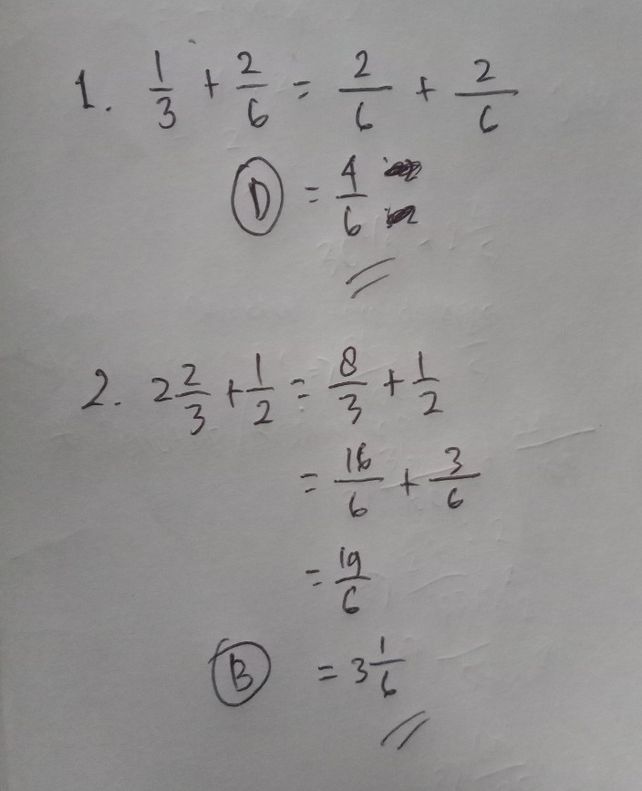 1. 1/3 + 2/6 = 2/6 + 2/6
D = 4/6
2. 2 2/3 + 1/2 = 8/3 + 1/2
= 16/6 + 3/6
= 19/6
B = 3 1/6